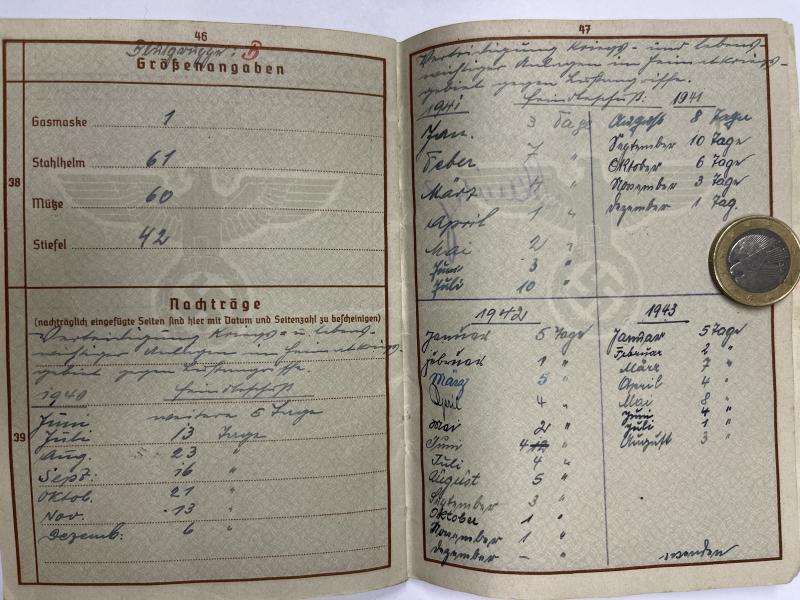 46
Blutgruppe: B
Größenangaben
38
Gasmaske 1
Stahlhelm 61
Mütze 60
Stiefel 42
Nachträge
(nachträglich eingefügte Seiten sind hier mit Datum und Seitenzahl zu bescheinigen)
Verteidigung Kriegs- u. lebens-
wichtiger Anlagen im Heimatkriegs-
gebiet gegen Luftangriffe
1940 Feindbeschuß
39
Juni weitere 5 Tage
Juli 13 Tage
Aug. 23 "
Sept: 16 "
Oktob. 21 "
Nov. 13 "
Dezemb: 6 "
47
Verteidigung Kriegs- und lebens-
wichtiger Anlagen im Heimatkriegs-
gebiet gegen Luftangriffe.
1941 Feindbeschuß: 1941
Jan. 3 Tage
Feber 7 "
März "
April 1 "
Mai 2 "
Juni 3 "
Juli 10 "
August 8 Tage
September 10 Tage
Oktober 6 Tage
November 3 Tage
Dezember 1 Tag.
1942
Januar 5 Tage
Februar 1 "
März 5 "
April 4 "
Mai 2 "
Juni 4 12 "
Juli 4 "
August 5 "
September 3 "
Oktober 1 "
November 1 "
Dezember - "
1943
Januar 5 Tage
Februar 2 "
März 7 "
April 4 "
Mai 8 "
Juni 4 "
Juli 1 "
August 3 "
wenden